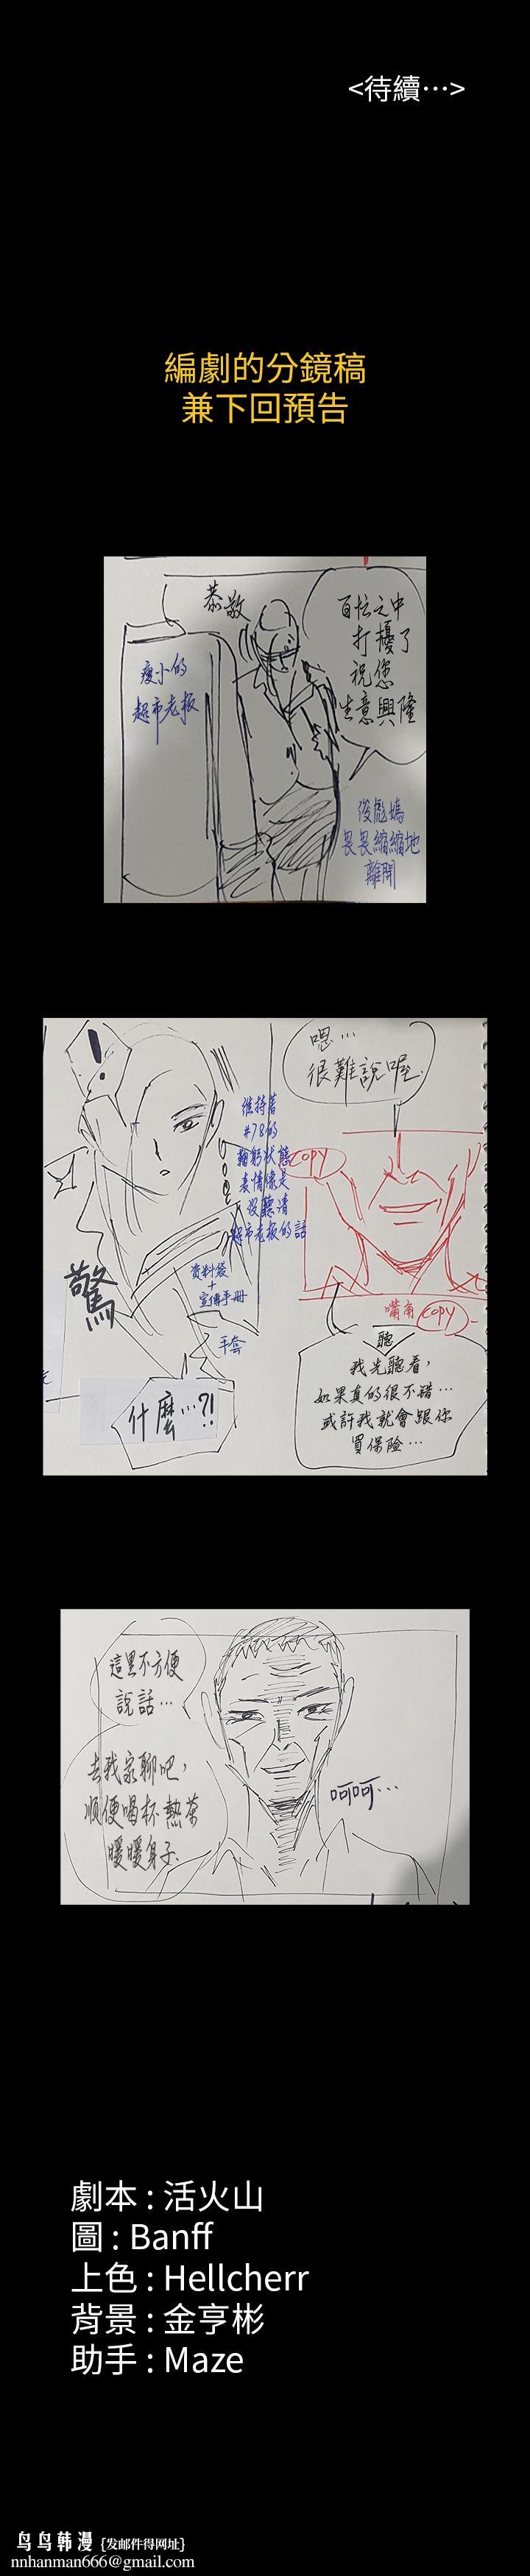 <待續⋯>
編劇的分鏡稿
兼下回預告
恭敬
百忙之中
打擾了
祝您
生意興隆
瘦小的
超市老板
俊彪媽
畏畏縮縮地
離開
!
嗯…
很難說喔.
維持着
#78的
鞠躬狀態
表情像是
沒聽清
超市老板的話
COPY
资料袋
+
宣傳手冊
手套
驚
什麼…?!
嘴角 COPY
聽
我先聽看,
如果真的很不錯…
或許我就會跟你
買保險…
這里不方便
說話…
去我家聊吧,
順便喝杯熱茶
暖暖身子.
呵呵…
劇本 : 活火山
圖 : Banff
上色 : Hellcherr
背景 : 金亨彬
助手 : Maze
鸟鸟韩漫 {发邮件得网址}
nnhanman666@gmail.com